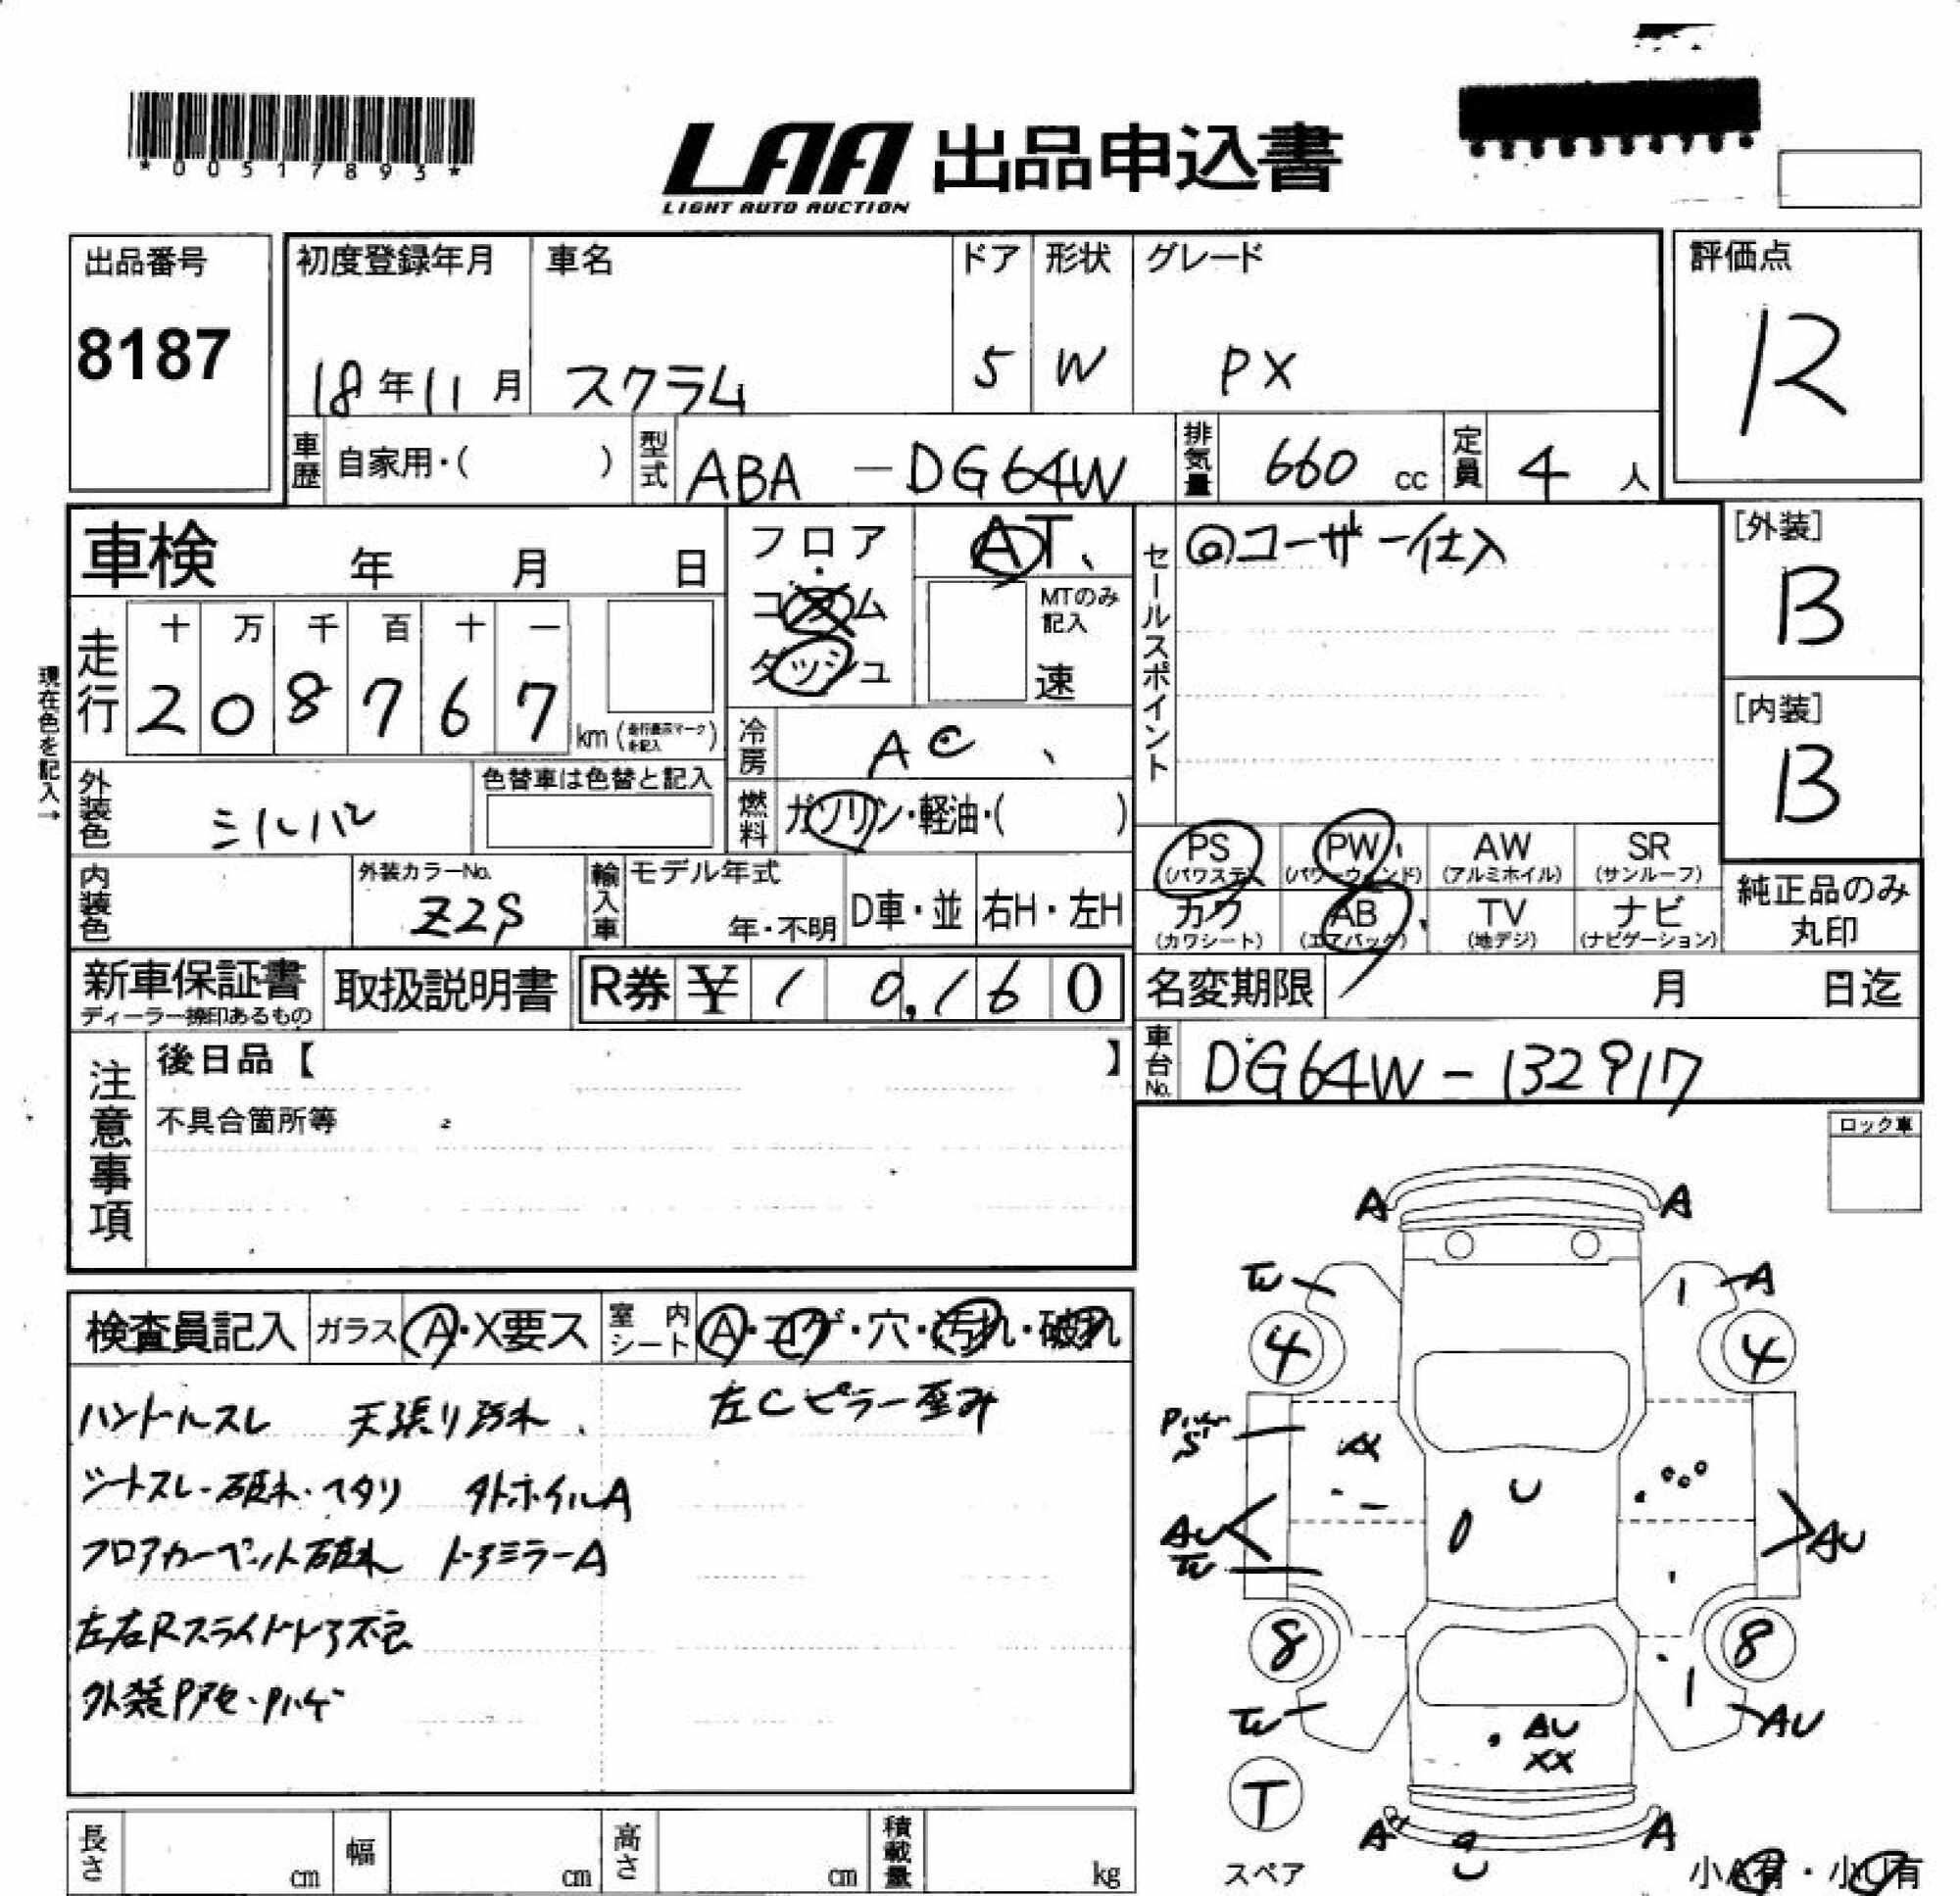 *00517893*
LAA 出品申込書
LIGHT AUTO AUCTION
出品番号
8187
初度登録年月
18年11月
車名
スクラム
ドア
5
形状
W
グレード
PX
評価点
R
車歴
自家用・( )
型式
ABA - DG64W
排気量
660 cc
定員
4 人
車検 年 月 日
フロア
・
コラム
ダッシュ
AT、
MTのみ
記入
速
セールスポイント
◎ユーザー仕入
[外装]
B
[内装]
B
現在色を記入→
走行
十 万 千 百 十 一
2 0 8 7 6 7
km (走行表示マークを記入)
冷房
AC 、
燃料
ガソリン・軽油・( )
外装色
シルバ
色替車は色替と記入
内装色
外装カラーNo.
Z2S
輸入車
モデル年式
年・不明
D車・並
右H・左H
PS
(パワステ)
PW
(パワーウィンド)
AW
(アルミホイル)
SR
(サンルーフ)
カワ
(カワシート)
AB
(エアバッグ)
TV
(地デジ)
ナビ
(ナビゲーション)
純正品のみ
丸印
新車保証書
ディーラー捺印あるもの
取扱説明書
R券 ¥ 10,160
名変期限 月 日迄
車台No.
DG64W-132917
注意事項
後日品【 】
不具合箇所等
ロック車
検査員記入
ガラス
A・X要ス
室内
シート
A・コゲ・穴・汚れ・破れ
ハンドルスレ 天張り汚れ 左Cピラー歪み
シートスレ・破れ・ヘタリ 外ホイルA
フロアカーペット破れ ドアミラーA
左右Rスライドドア不良
外装Pアセ・Pハゲ
A A
W A
4 4
S
XX
U
AU AU
W
8 8
W AU
AU
XX
T
スペア
A A
U
小A有・小U有
長さ cm
幅 cm
高さ cm
積載量 kg